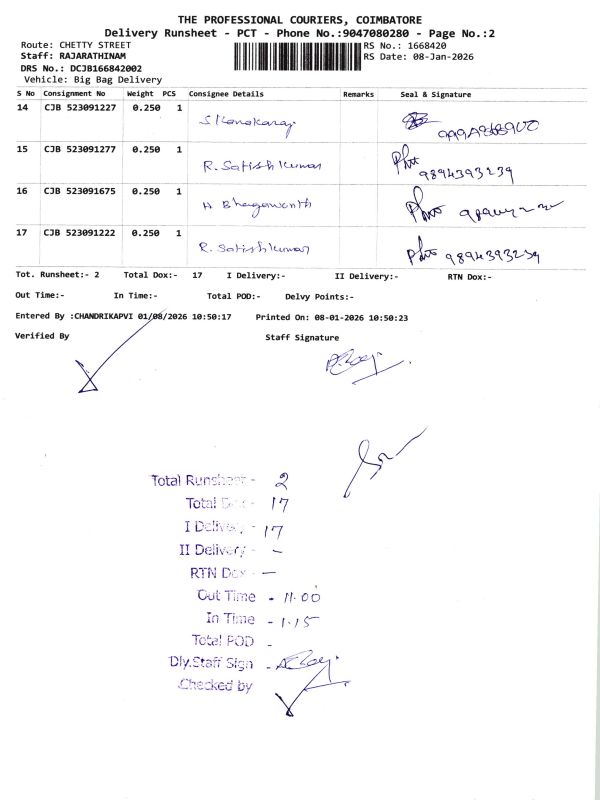 THE PROFESSIONAL COURIERS, COIMBATORE
Delivery Runsheet - PCT - Phone No.:9047080280 - Page No.:2
Route: CHETTY STREET
RS No.: 1668420
Staff: RAJARATHINAM
RS Date: 08-Jan-2026
DRS No.: DCJB166842002
Vehicle: Big Bag Delivery
S No Consignment No Weight PCS Consignee Details Remarks Seal & Signature
14 CJB 523091227 0.250 1 S. Kanakaraj
15 CJB 523091277 0.250 1 R. Satish kumar 9894393239
16 CJB 523091675 0.250 1
17 CJB 523091222 0.250 1 R. Satish kumar 9894393239
Tot. Runsheet:- 2 Total Dox:- 17 I Delivery:- II Delivery:- RTN Dox:-
Out Time:- In Time:- Total POD:- Delvy Points:-
Entered By :CHANDRIKAPVI 01/08/2026 10:50:17 Printed On: 08-01-2026 10:50:23
Verified By Staff Signature
Total Runsheet - 2
Total Dox - 17
I Delivery - 17
II Delivery - -
RTN Dox - -
Out Time - 11.00
In Time - 1.15
Total POD -
Dly.Staff Sign -
Checked by